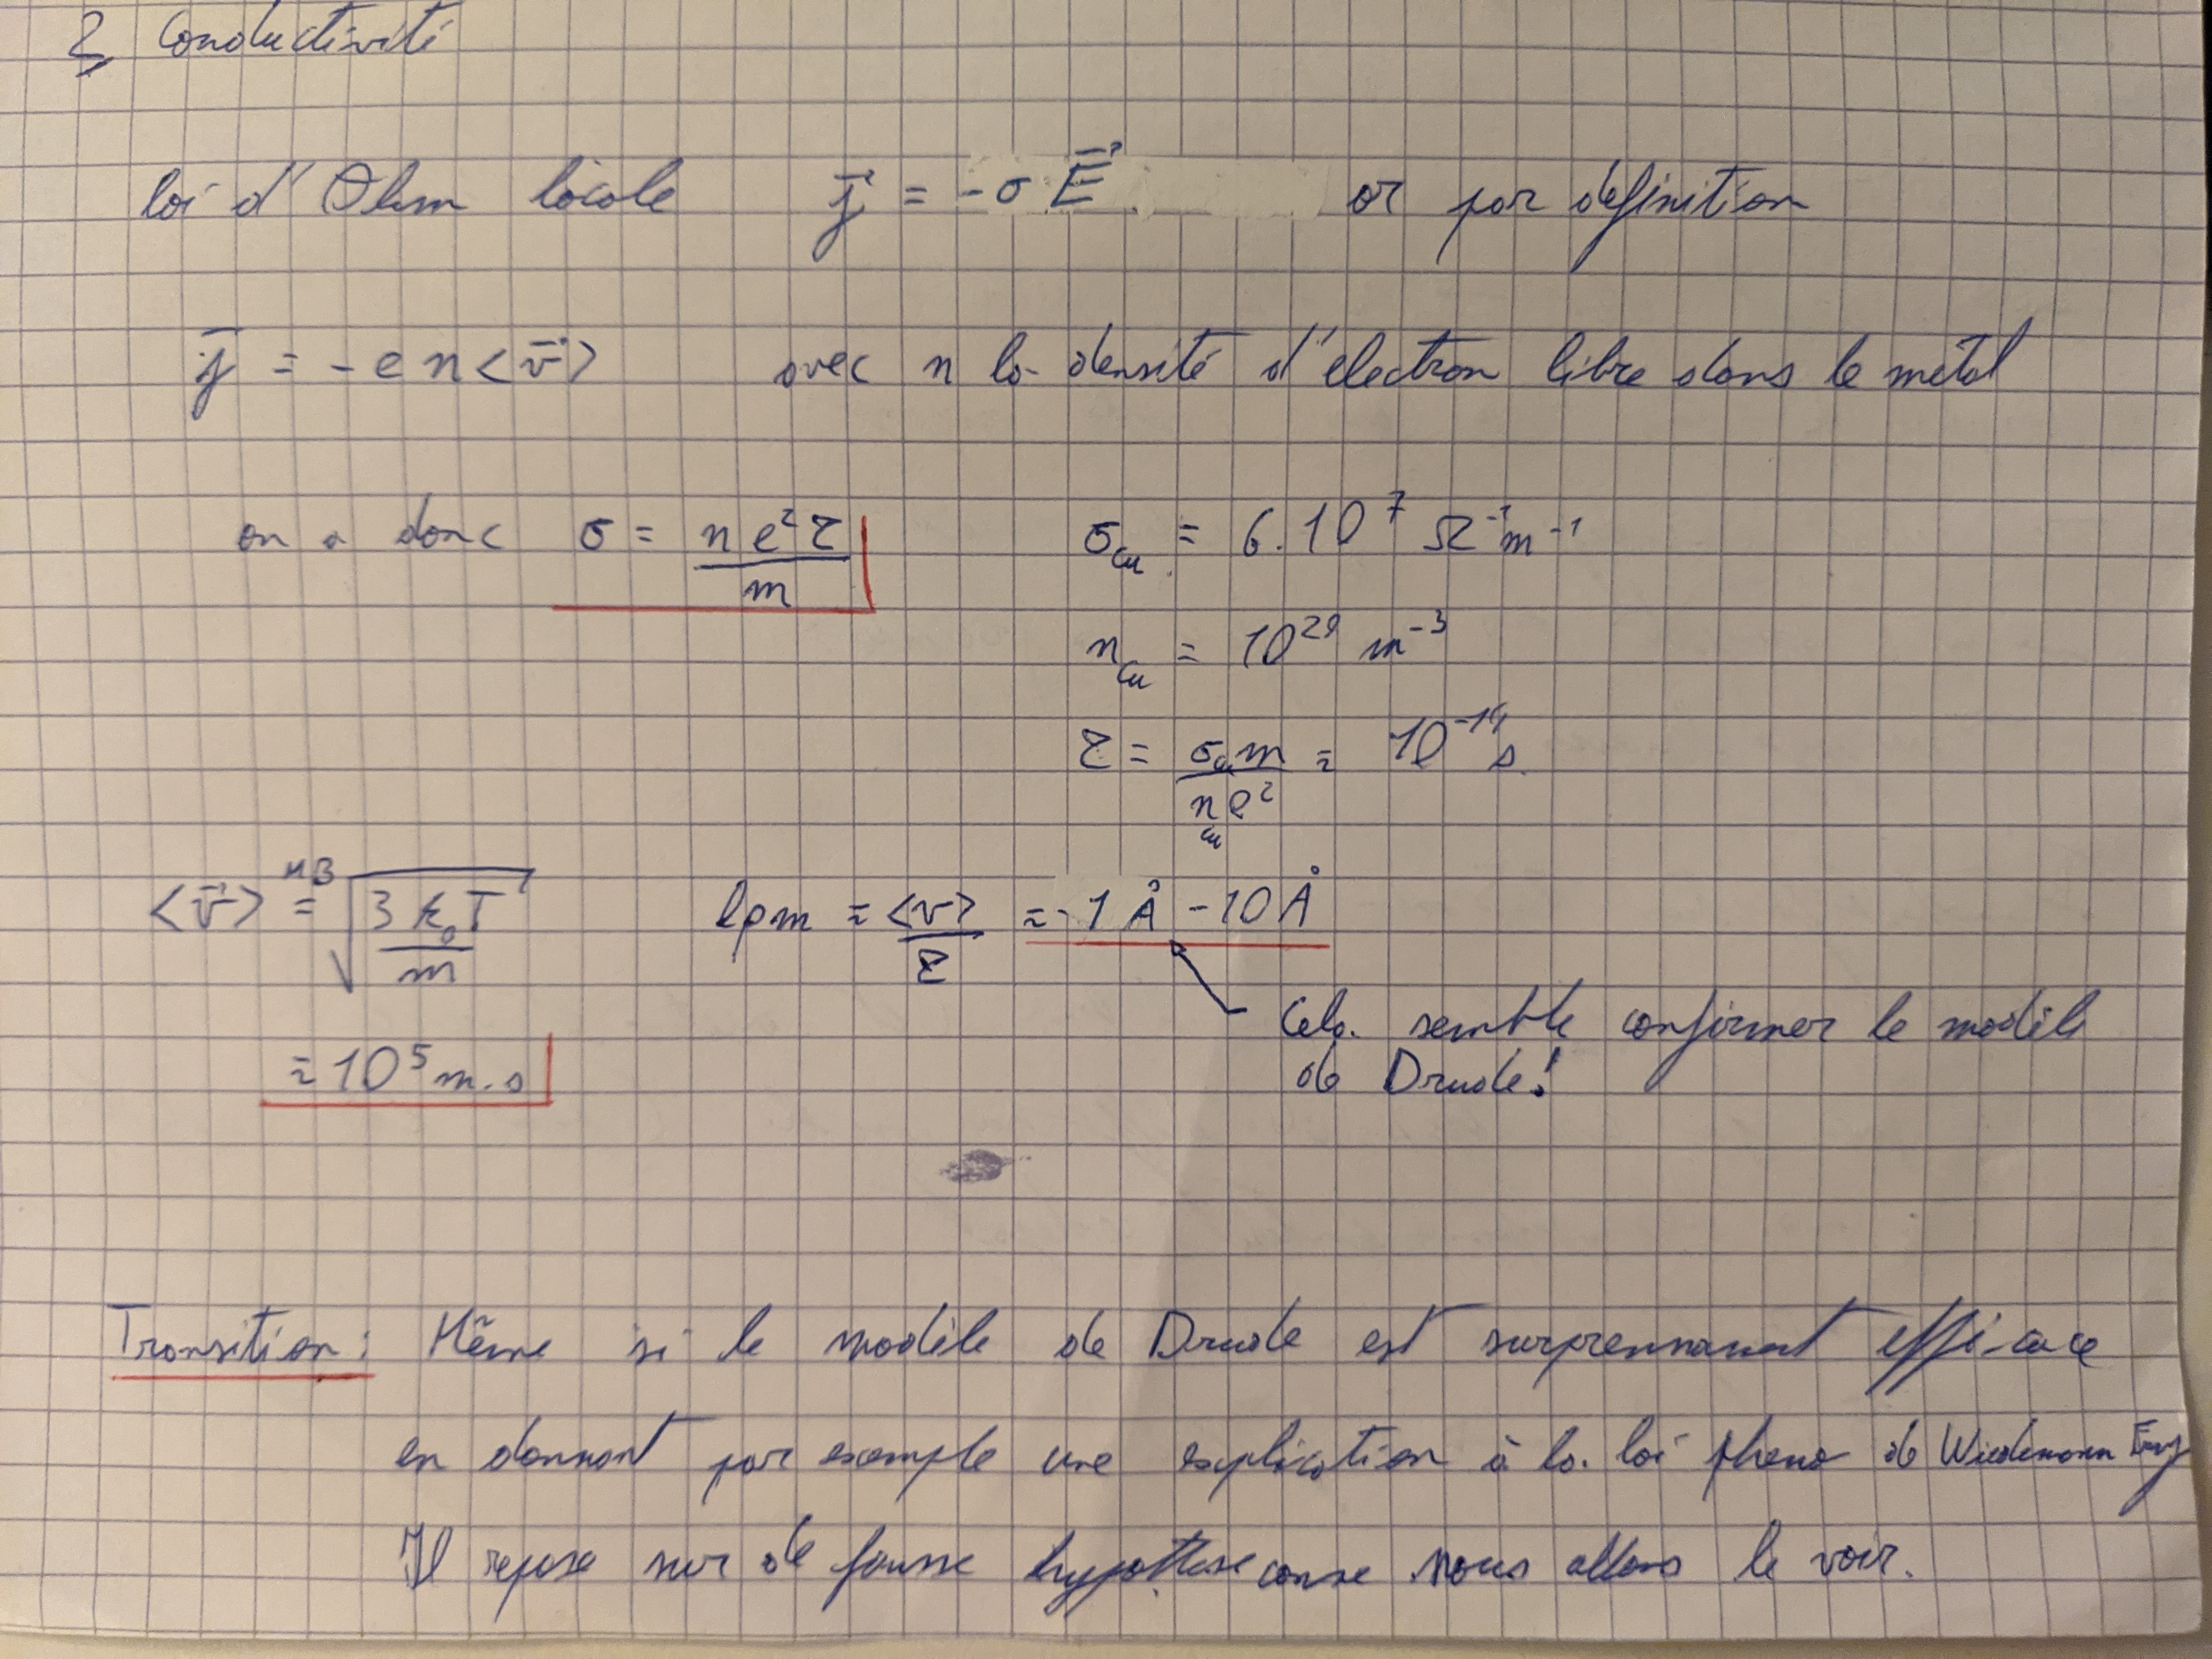 2) Conductivité
loi d'Ohm locale j⃗ = -σE⃗ or par définition
j⃗ = -en<v⃗> avec n la densité d'électron libre dans le métal
on a donc σ = ne²τ/m σCu = 6.10⁷ Ω⁻¹m⁻¹
nCu = 10²⁹ m⁻³
τ = σCu m/nCu e² = 10⁻¹⁴ s
<v⃗> =ᴹᴮ √(3kBT/m) lpm = <v>/τ = 1Å - 10Å
≈ 10⁵ m.s Cela semble confirmer le modèle
de Drude !
Transition : Même si le modèle de Drude est surprennamant efficace
en donnant par exemple une explication à la loi phéno de Wiedemann Franz
Il repose sur de fausse hypothèse comme nous allons le voir.